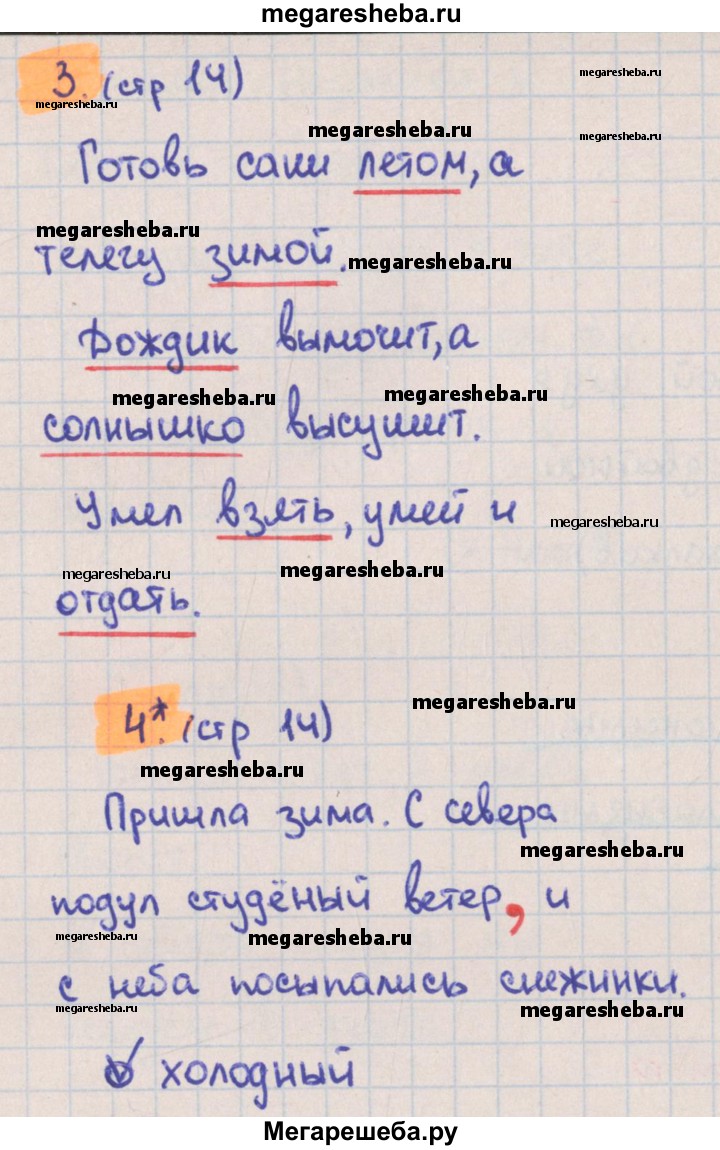 megaresheba.ru
3. (стр 14)
megaresheba.ru
megaresheba.ru
megaresheba.ru
megaresheba.ru
Готовь сани летом, а
megaresheba.ru
телегу зимой.
megaresheba.ru
Дождик вымочит, а
megaresheba.ru
megaresheba.ru
солнышко высушит.
Умел взять, умей и
megaresheba.ru
megaresheba.ru
megaresheba.ru
отдать.
megaresheba.ru
4*. (стр 14)
megaresheba.ru
Пришла зима. С севера
megaresheba.ru
подул студёный ветер, и
megaresheba.ru
megaresheba.ru
с неба посыпались снежинки.
megaresheba.ru
megaresheba.ru
холодный
Мегарешеба.ру